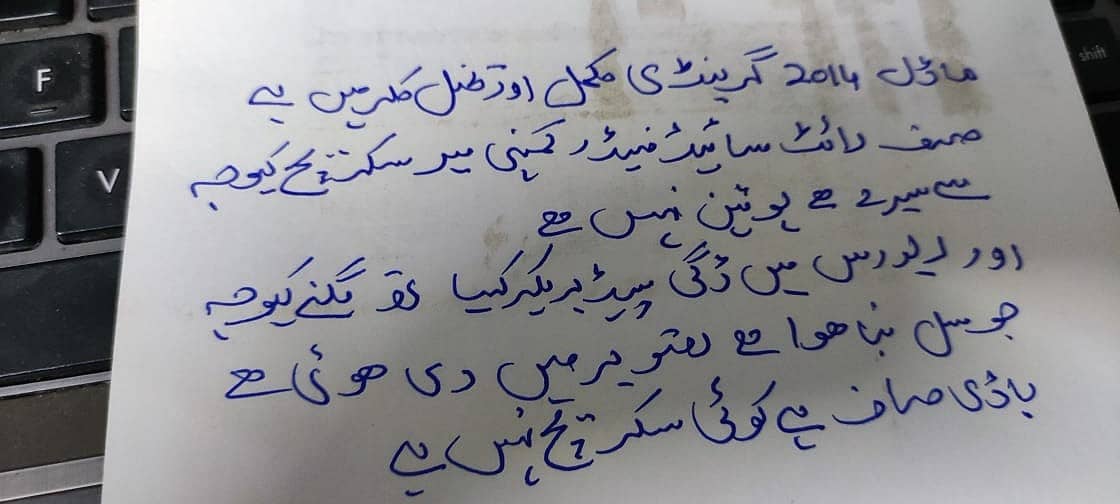 ماڈل 2014 گرینڈی مکمل اورجنل کلر میں ہے
صرف رائٹ سائیڈ فینڈر کمپنی میں سکریچ کیوجہ
سے سپرے ہے پوٹین نہیں ہے
اور ریورس میں ڈگی سپیڈ بریکر کیساتھ لگنے کیوجہ
جو سل بنا ہوا ہے تصویر میں دی ہوئی ہے
باڈی صاف ہے کوئی سکریچ نہیں ہے
F
V
shift